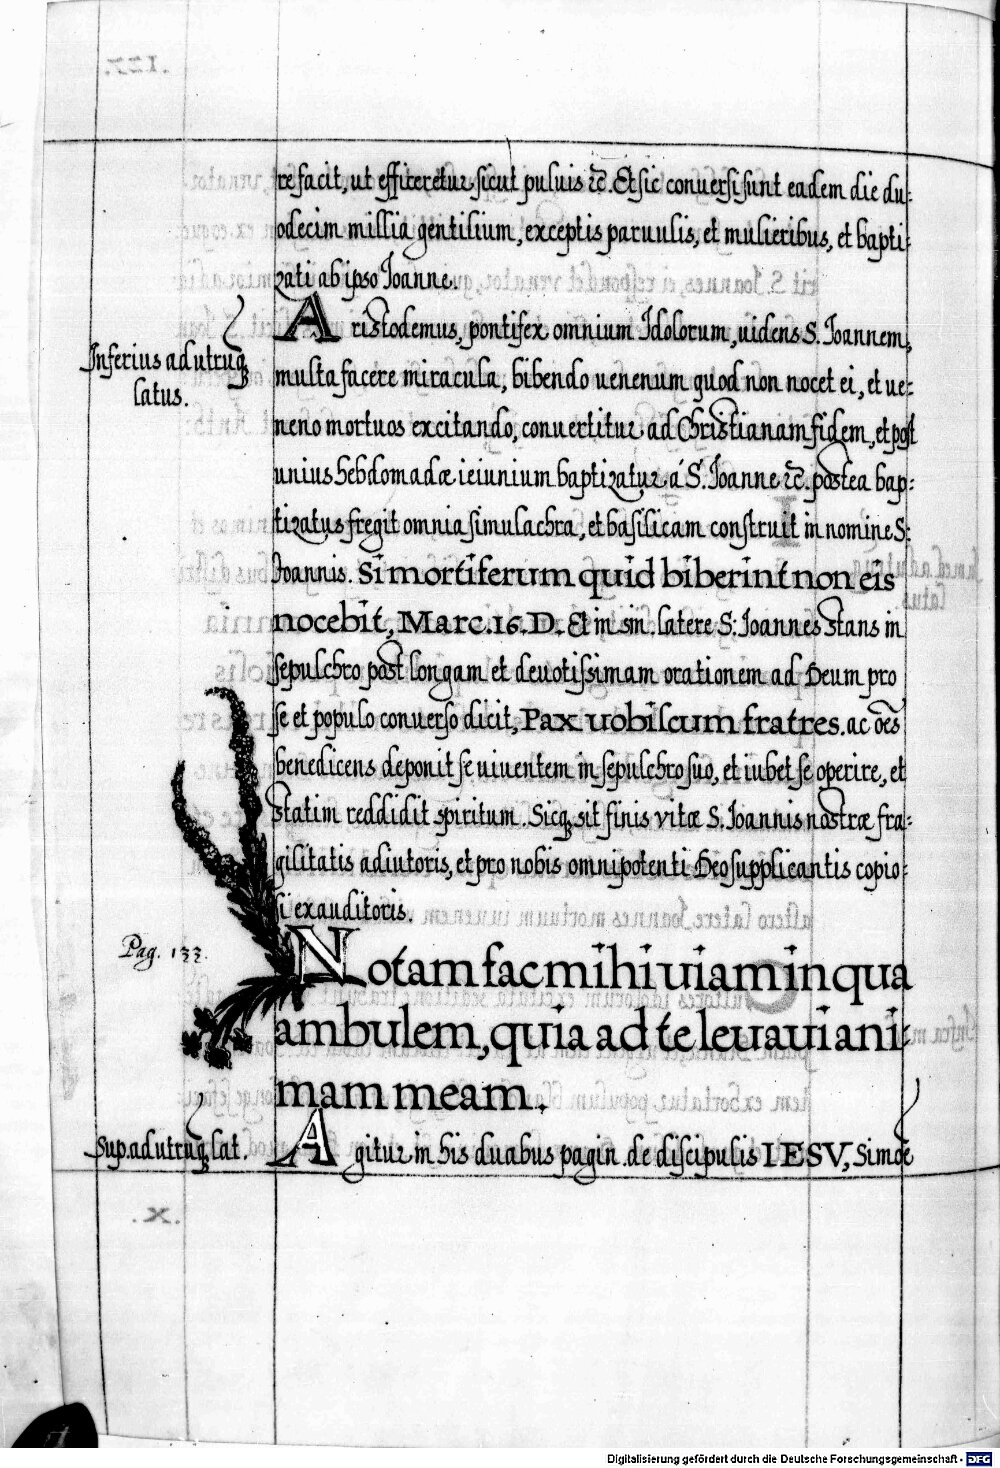 re facit, ut efficeretur sicut puluis &c. Et sic conuersi sunt eadem die du:
odecim millia gentilium, exceptis paruulis, et mulieribus, et bapti:
zati ab ipso Joanne.
Aristodemus, pontifex omnium Idolorum, uidens S. Joannem,
Inferius ad utrunq;
latus.
multa facere miracula, bibendo uenenum quod non nocet ei, et ue:
neno mortuos excitando, conuertitur ad Christianam fidem, et post
unius hebdomadæ ieiunium baptizatur á S. Joanne &c. postea bap:
tizatus fregit omnia simulachra, et basilicam construit in nomine S:
Joannis. Si mortiferum quid biberint non eis
nocebit, Marc. 16. D. Et in sin. latere S: Joannes stans in
sepulchro post longam et deuotissimam orationem ad Deum pro
se et populo conuerso dicit, Pax uobiscum fratres. ac oēs
benedicens deponit se uiuentem in sepulchro suo, et iubet se operire, et
statim reddidit spiritum. Sicq; sit finis vitæ S. Joannis nostræ fra-
gilitatis adiutoris, et pro nobis omnipotenti Deo supplicantis copio:
si exauditoris.
Pag. 133.
Notam fac mihi uiam in qua
ambulem, quia ad te leuaui ani:
mam meam.
Sup. ad utrunq; lat.
Agitur in his duabus pagin. de discipulis IESV, Simōe
Digitalisierung gefördert durch die Deutsche Forschungsgemeinschaft - DFG